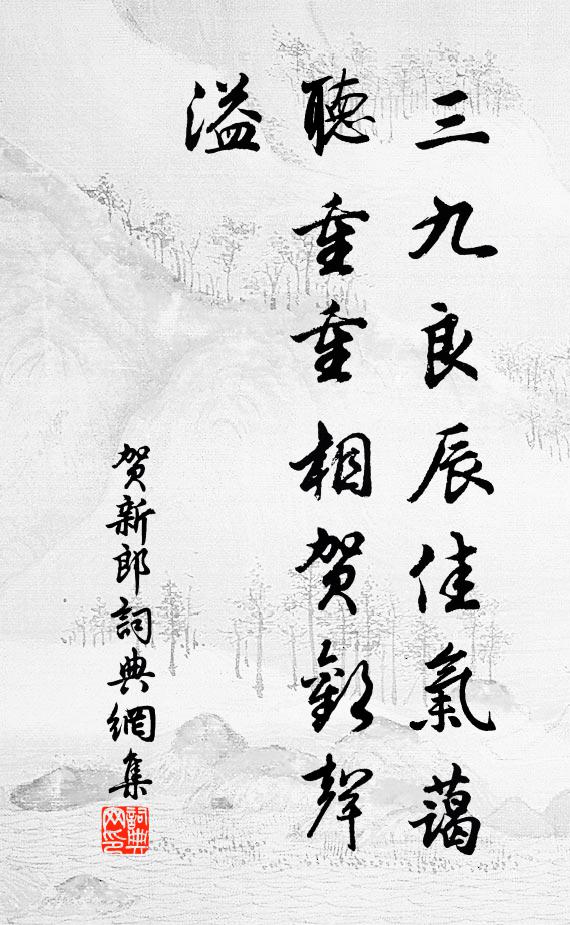 三九良辰佳氣藹
聽重重相賀歡聲
溢
贺新郎詞典網集
詞典网印